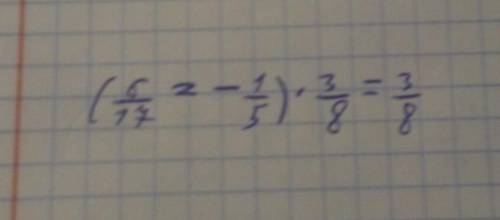 (6/17 x - 1/5) · 3/8 = 3/8